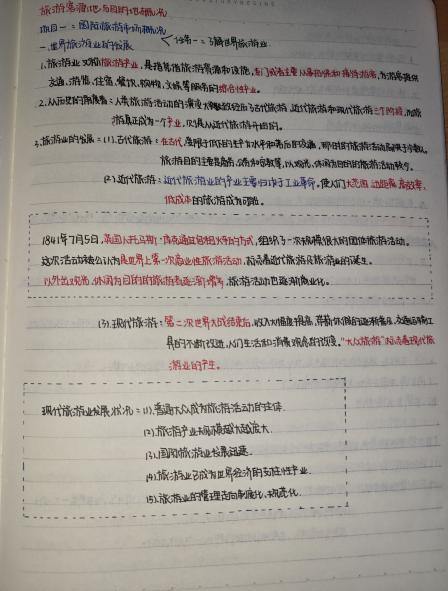 旅游客源地与目的地概况
项目一：国际旅游市场概况
一、世界旅游业的发展 任务一：了解世界旅游业
1、旅游业又称旅游产业，是指凭借旅游资源和设施，专门或者主要从事招徕和接待游客，为游客提供
交通、游览、住宿、餐饮、购物、文娱等服务的综合性产业。
2、从历史的角度看：人类旅游活动的演变大概经历了古代旅游、近代旅游和现代旅游三个阶段，而旅
游真正成为一个产业，则是从近代旅游开始的。
3、旅游业的发展：(1)、古代旅游：在古代，
旅游目的主要是商务、宗教和教育等，以观光、休闲为目的的旅游活动较少。
(2)、近代旅游：近代旅游业的产生主要归功于工业革命。使人们大范围、远距离、高效率、
低成本的旅游成为可能。
1841年7月5日，英国人托马斯·库克通过包租火车的方式，组织了一次规模很大的团体旅游活动。
这次活动被公认为是世界上第一次商业性旅游活动，标志着近代旅游及旅游业的诞生。
以外出观光、休闲为目的的旅游者逐渐增多，旅游活动也逐渐商业化。
(3)、现代旅游：第二次世界大战结束后，收入大幅度提高，带薪休假的逐渐普及，交通运输工
具的不断改进，人们生活和消费观念的改变。"大众旅游"标志着现代旅
游业的产生。
现代旅游业发展状况：(1)、普通大众成为旅游活动的主体.
(2)、旅游产业规模越来越庞大.
(3)、国际旅游业发展迅速.
(4)、旅游业已成为世界经济的支柱性产业.
(5)、旅游业的管理走向制度化、规范化.